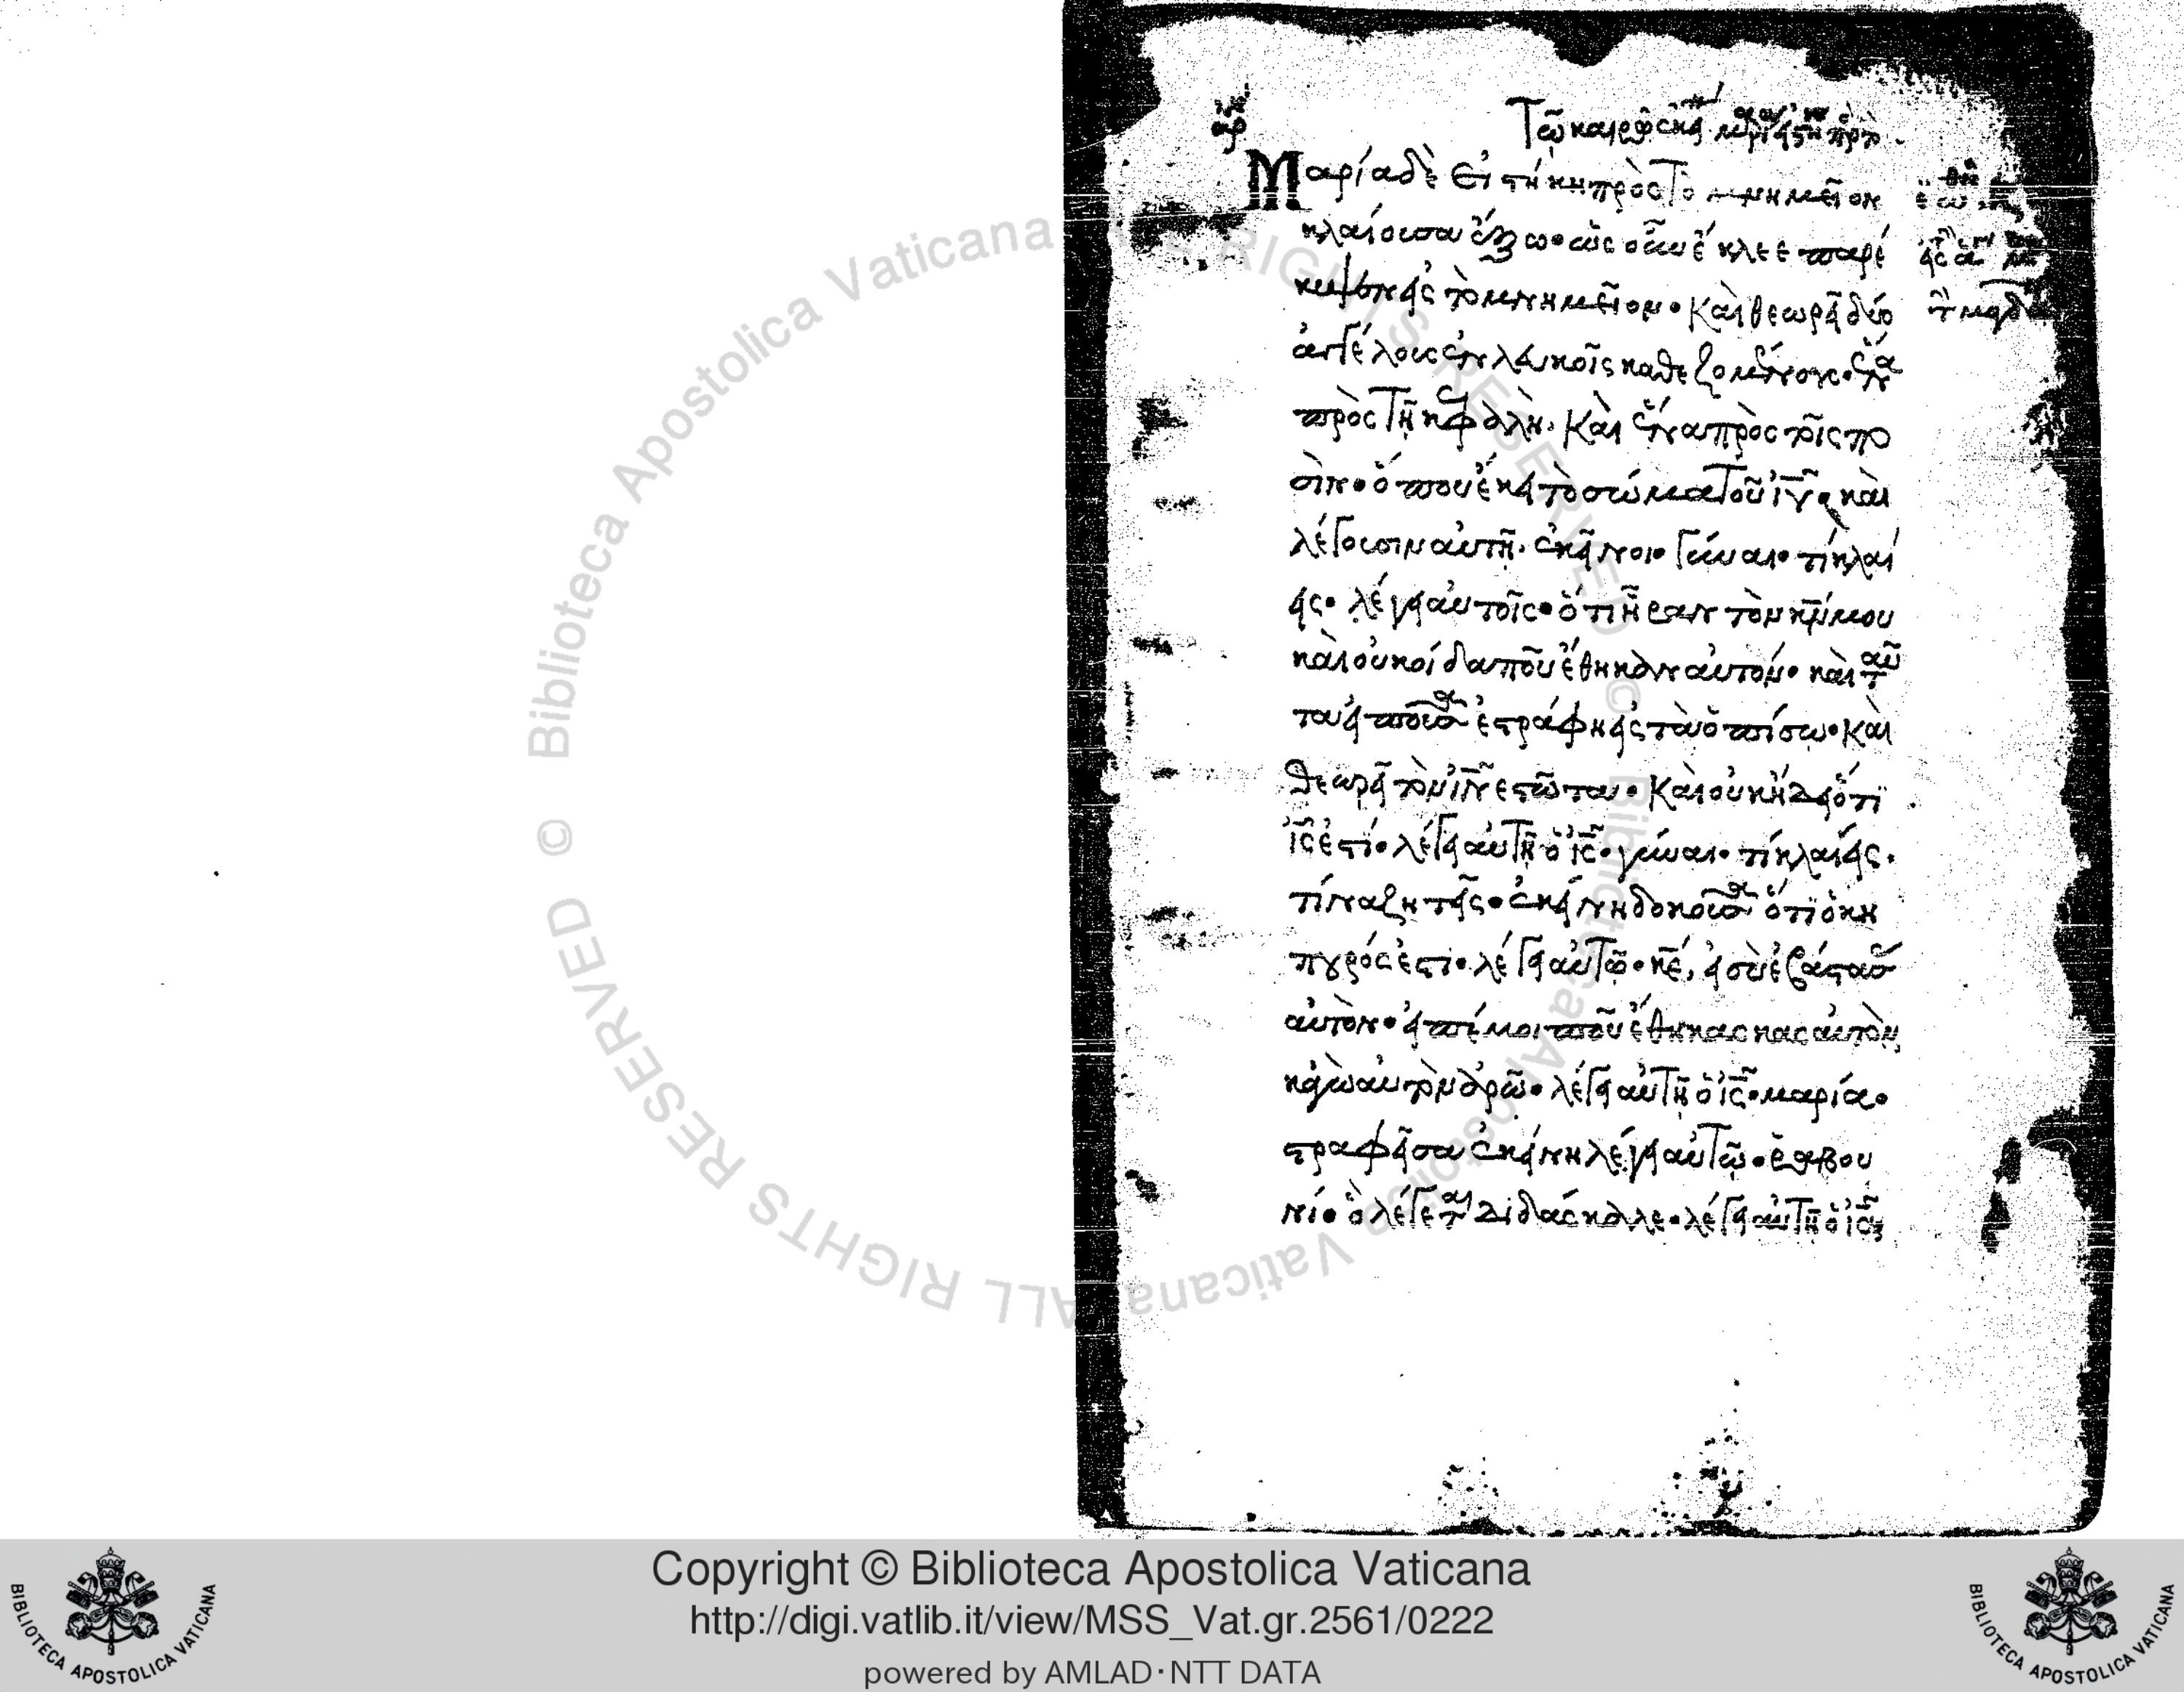 Τῶ καιρῶ ἐκεί
Μαρία δὲ εἱστήκη πρὸς τὸ μνημεῖον
κλαίουσα ἔξω· ὡς οὖν ἔκλεε παρέ
κυψεν εἰς τὸ μνημεῖον· Καὶ θεωρεῖ δύο
ἀγγέλους ἐν λευκοῖς καθεζομένους· ἕνα
πρὸς τῆ κεφαλῆ· Καὶ ἕνα πρὸς τοῖς πο
σὶν· ὅπου ἔκει τὸ σώμα τοῦ ἰῦ, καὶ
λέγουσιν αὐτῆ· ἐκεῖνοι· Γύναι· τί κλαί
εις· λέγει αὐτοῖς· ὅτι ἦραν τὸν κν μου
καὶ οὐκ οἶδα ποῦ ἔθηκαν αὐτόν· καὶ ταῦ
τα εἰποῦσα ἐστράφη εἰς τὰ ὀπίσω· Καὶ
θεωρεῖ τὸν ἰν ἐστῶτα· Καὶ οὐκ ἤδει ὅτι
ἰς ἐστί· λέγει αὐτῆ ὁ ἰς· γύναι· τί κλαίεις·
τίνα ζητεῖς· ἐκείνη δοκοῦσα ὅτι ὁ κη
πουρός ἐστι· λέγει αὐτῶ· κε, εἰ σὺ ἐβάστασ
αὐτὸν· εἰπέ μοι ποῦ ἔθηκας κας αὐτὸν,
κἀγὼ αὐτὸν ἀρῶ· λέγει αὐτῆ ὁ ἰς· μαρία·
στραφεῖσα ἐκείνη λέγει αὐτῶ· ραβου
νί· ὃ λέγεται διδάσκαλε· λέγει αὐτῆ ὁ ἰς
© Biblioteca Apostolica Vaticana ALL RIGHTS RESERVED © Biblioteca Apostolica Vaticana ALL RIGHTS RESERVED
BIBLIOTECA APOSTOLICA VATICANA
Copyright © Biblioteca Apostolica Vaticana
http://digi.vatlib.it/view/MSS_Vat.gr.2561/0222
powered by AMLAD·NTT DATA
BIBLIOTECA APOSTOLICA VATICANA